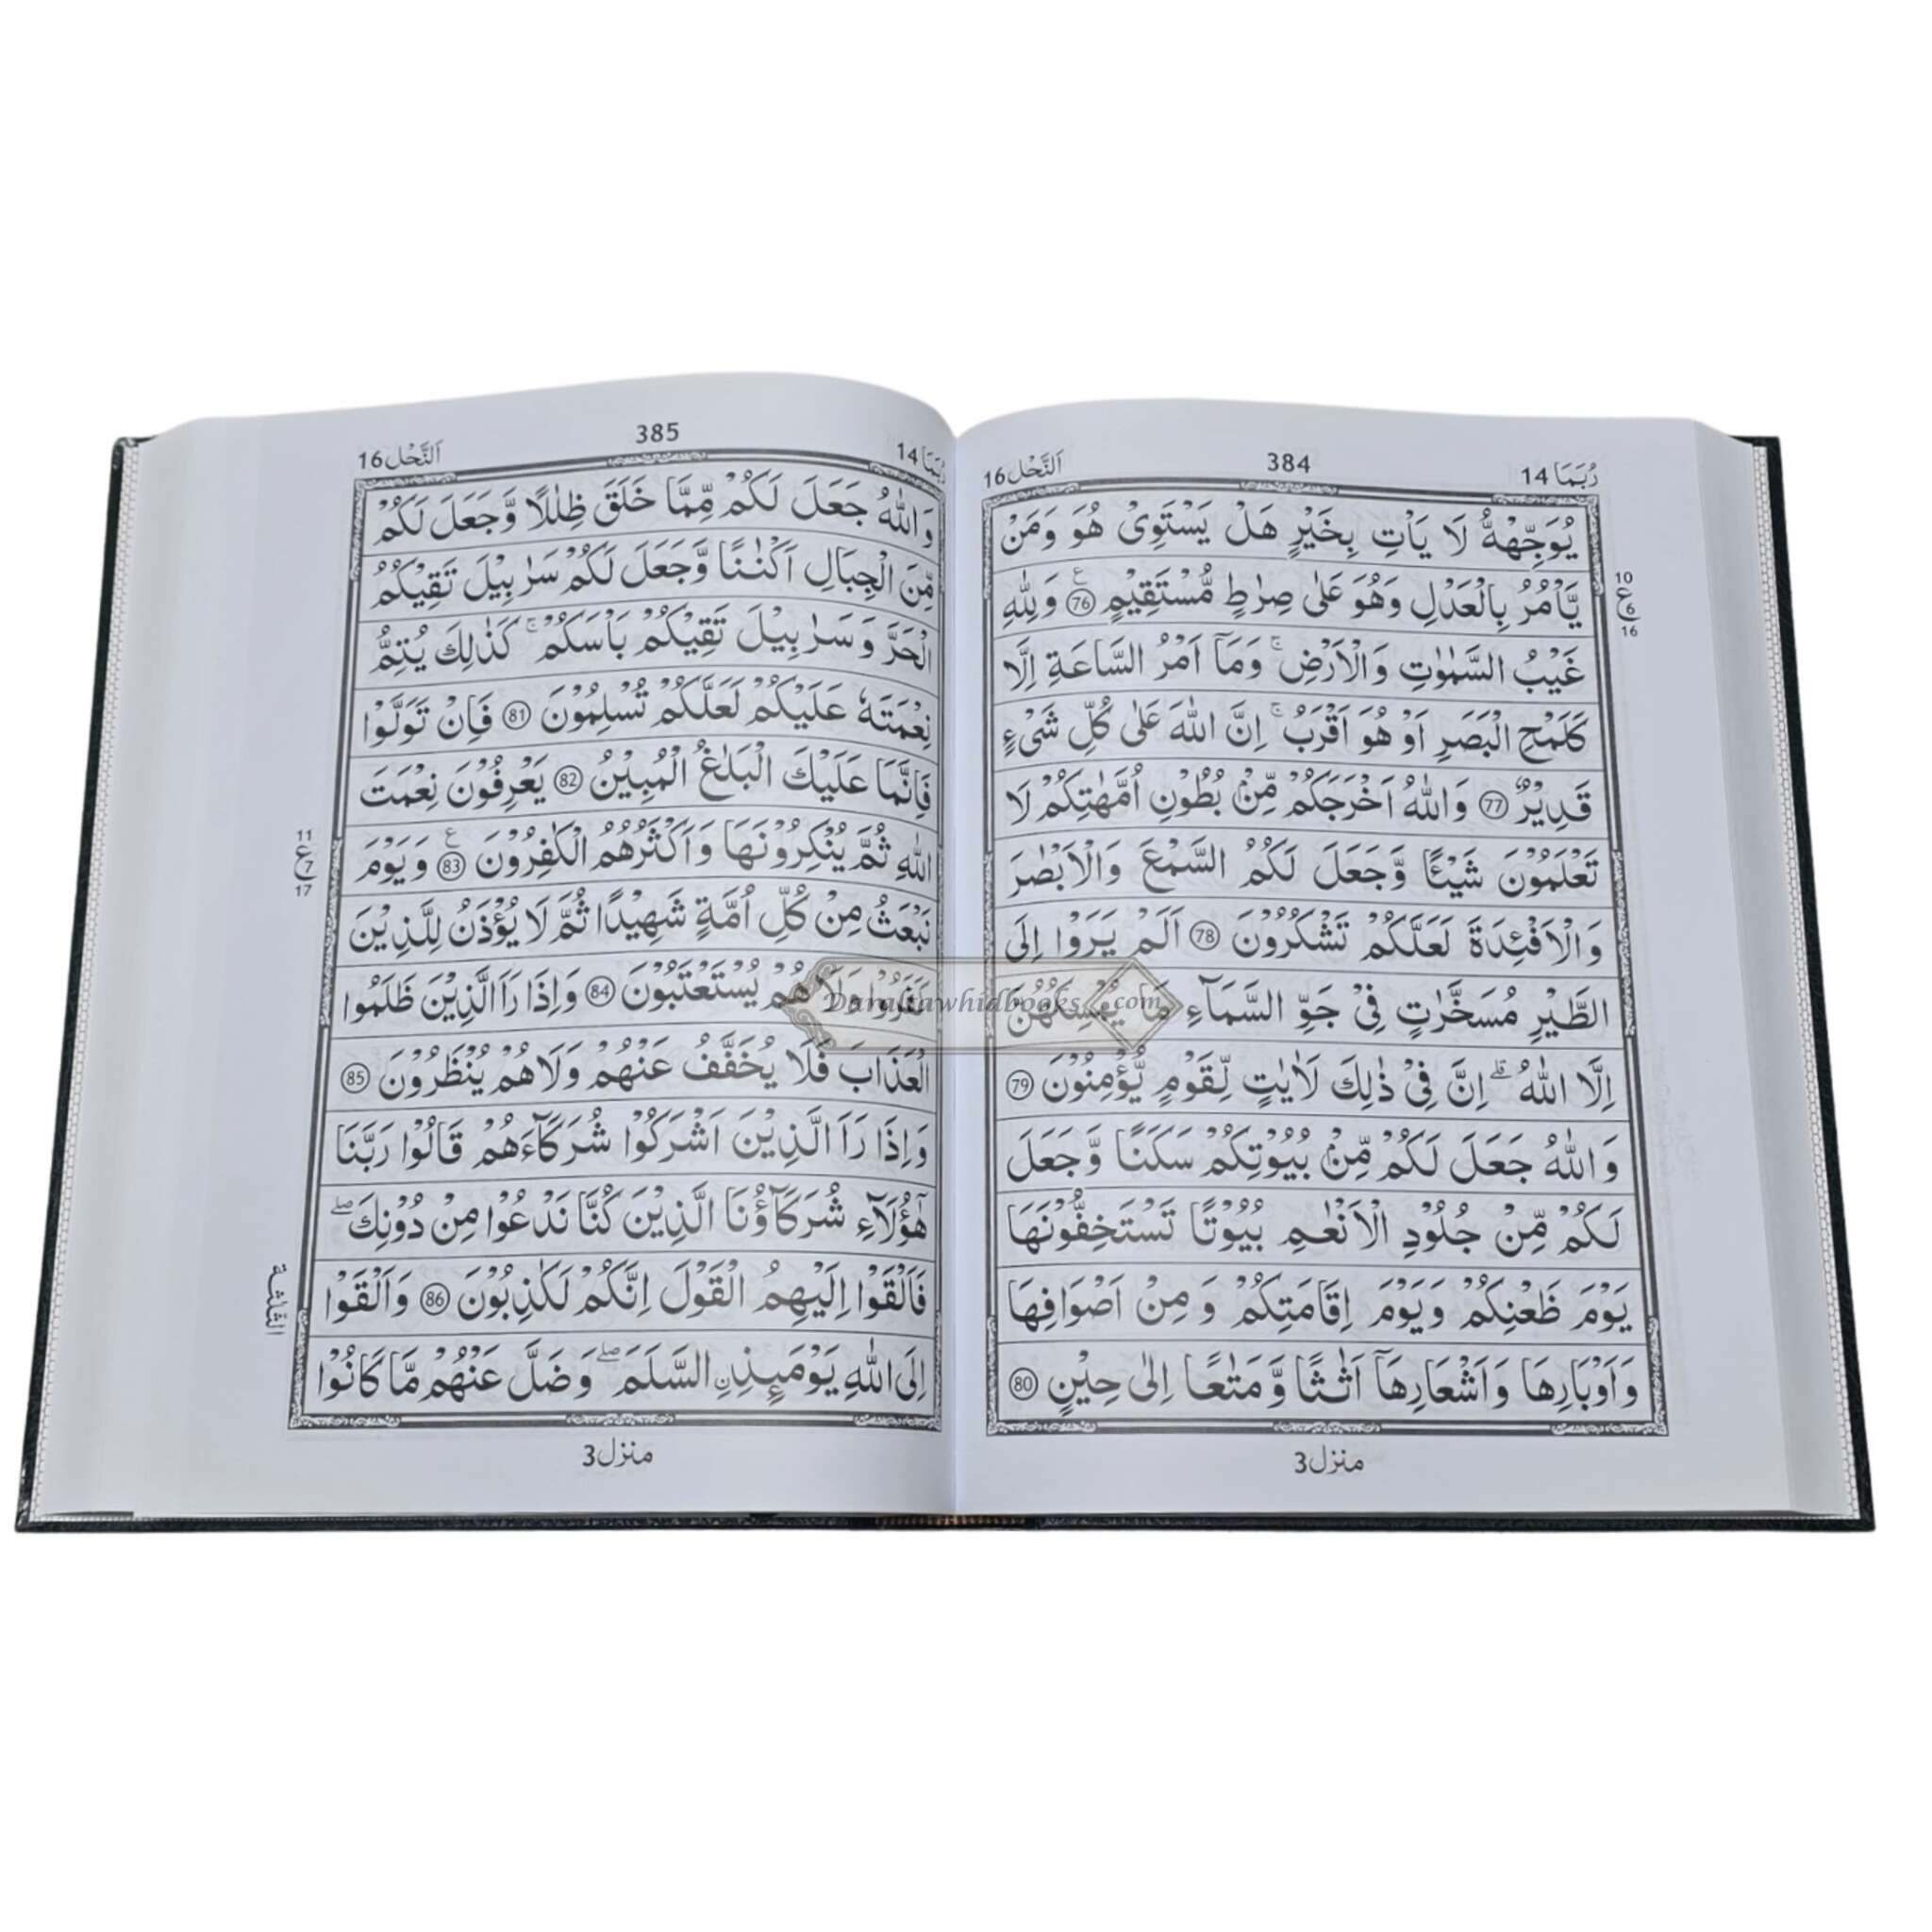 رُبَمَا 14
384
اَلنَّحْل 16
يُوَجِّهْهُّ لَا يَاْتِ بِخَيْرٍ هَلْ يَسْتَوِىْ هُوَ وَمَنْ
يَّاْمُرُ بِالْعَدْلِ وَهُوَ عَلٰى صِرٰطٍ مُّسْتَقِيْمٍ 76 وَلِلّٰهِ
غَيْبُ السَّمٰوٰتِ وَالْاَرْضِ ۚ وَمَآ اَمْرُ السَّاعَةِ اِلَّا
كَلَمْحِ الْبَصَرِ اَوْ هُوَ اَقْرَبُ ۚ اِنَّ اللّٰهَ عَلٰى كُلِّ شَىْءٍ
قَدِيْرٌ 77 وَاللّٰهُ اَخْرَجَكُمْ مِّنْۢ بُطُوْنِ اُمَّهٰتِكُمْ لَا
تَعْلَمُوْنَ شَيْـًٔا وَّجَعَلَ لَكُمُ السَّمْعَ وَالْاَبْصٰرَ
وَالْاَفْـِٕدَةَ لَعَلَّكُمْ تَشْكُرُوْنَ 78 اَلَمْ يَرَوْا اِلَى
الطَّيْرِ مُسَخَّرٰتٍ فِىْ جَوِّ السَّمَآءِ مَا يُمْسِكُهُنَّ
اِلَّا اللّٰهُ ۗ اِنَّ فِىْ ذٰلِكَ لَاٰيٰتٍ لِّقَوْمٍ يُّؤْمِنُوْنَ 79
وَاللّٰهُ جَعَلَ لَكُمْ مِّنْۢ بُيُوْتِكُمْ سَكَنًا وَّجَعَلَ
لَكُمْ مِّنْ جُلُوْدِ الْاَنْعٰمِ بُيُوْتًا تَسْتَخِفُّوْنَهَا
يَوْمَ ظَعْنِكُمْ وَيَوْمَ اِقَامَتِكُمْ وَمِنْ اَصْوَافِهَا
وَاَوْبَارِهَا وَاَشْعَارِهَآ اَثٰثًا وَّمَتٰعًا اِلٰى حِيْنٍ 80
منزل 3
10
ع
6
16
رُبَمَا 14
385
اَلنَّحْل 16
وَاللّٰهُ جَعَلَ لَكُمْ مِّمَّا خَلَقَ ظِلٰلًا وَّجَعَلَ لَكُمْ
مِّنَ الْجِبَالِ اَكْنٰنًا وَّجَعَلَ لَكُمْ سَرٰبِيْلَ تَقِيْكُمُ
الْحَرَّ وَسَرٰبِيْلَ تَقِيْكُمْ بَاْسَكُمْ ۚ كَذٰلِكَ يُتِمُّ
نِعْمَتَهٗ عَلَيْكُمْ لَعَلَّكُمْ تُسْلِمُوْنَ 81 فَاِنْ تَوَلَّوْا
فَاِنَّمَا عَلَيْكَ الْبَلٰغُ الْمُبِيْنُ 82 يَعْرِفُوْنَ نِعْمَتَ
اللّٰهِ ثُمَّ يُنْكِرُوْنَهَا وَاَكْثَرُهُمُ الْكٰفِرُوْنَ 83 وَيَوْمَ
نَبْعَثُ مِنْ كُلِّ اُمَّةٍ شَهِيْدًا ثُمَّ لَا يُؤْذَنُ لِلَّذِيْنَ
كَفَرُوْا وَلَا هُمْ يُسْتَعْتَبُوْنَ 84 وَاِذَا رَاَ الَّذِيْنَ ظَلَمُوا
الْعَذَابَ فَلَا يُخَفَّفُ عَنْهُمْ وَلَا هُمْ يُنْظَرُوْنَ 85
وَاِذَا رَاَ الَّذِيْنَ اَشْرَكُوْا شُرَكَآءَهُمْ قَالُوْا رَبَّنَا
هٰٓؤُلَآءِ شُرَكَآؤُنَا الَّذِيْنَ كُنَّا نَدْعُوْا مِنْ دُوْنِكَ ۖ
فَاَلْقَوْا اِلَيْهِمُ الْقَوْلَ اِنَّكُمْ لَكٰذِبُوْنَ 86 وَاَلْقَوْا
اِلَى اللّٰهِ يَوْمَىِٕذِ ِۨالسَّلَمَ ۖ وَضَلَّ عَنْهُمْ مَّا كَانُوْا
منزل 3
11
ع
7
17
الثلٰثة
Daraltawhidbooks.com